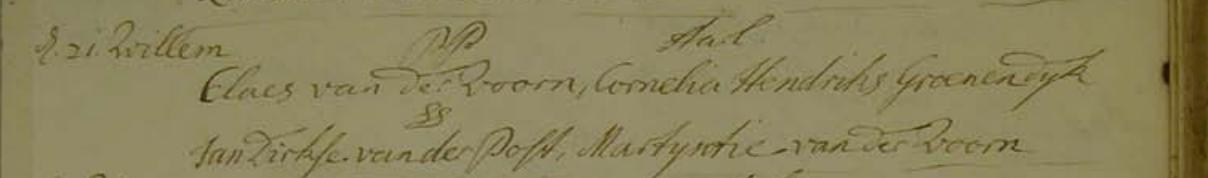 d. 21. Willem PP Aal
Claes van der Voorn, Cornelia Hendriks Groenendyk
SS
Jan Dirkse van der Post, Martyntie van der Voorn